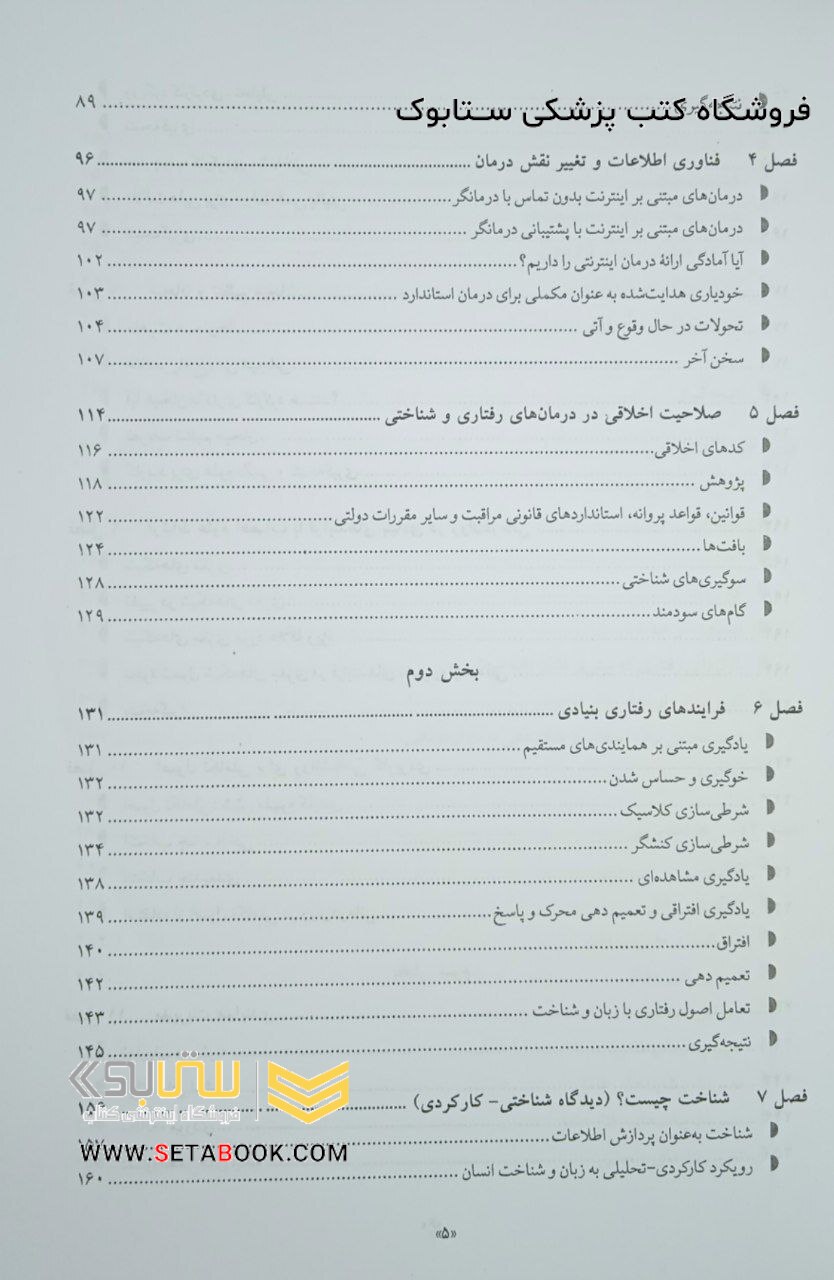 فروشگاه کتب پزشکی ستابوک
نتیجه‌گیری ........ ۸۹
فصل ۴ فناوری اطلاعات و تغییر نقش درمان ........ ۹۶
درمان‌های مبتنی بر اینترنت بدون تماس با درمانگر ........ ۹۷
درمان‌های مبتنی بر اینترنت با پشتیبانی درمانگر ........ ۹۷
آیا آمادگی ارائهٔ درمان اینترنتی را داریم؟ ........ ۱۰۲
خودیاری هدایت‌شده به عنوان مکملی برای درمان استاندارد ........ ۱۰۳
تحولات در حال وقوع و آتی ........ ۱۰۴
سخن آخر ........ ۱۰۷
فصل ۵ صلاحیت اخلاقی در درمان‌های رفتاری و شناختی ........ ۱۱۴
کدهای اخلاقی ........ ۱۱۶
پژوهش ........ ۱۱۸
قوانین، قواعد پروانه، استانداردهای قانونی مراقبت و سایر مقررات دولتی ........ ۱۲۲
بافت‌ها ........ ۱۲۴
سوگیری‌های شناختی ........ ۱۲۸
گام‌های سودمند ........ ۱۲۹
بخش دوم
فصل ۶ فرایندهای رفتاری بنیادی ........ ۱۳۱
یادگیری مبتنی بر همایندی‌های مستقیم ........ ۱۳۱
خوگیری و حساس شدن ........ ۱۳۲
شرطی‌سازی کلاسیک ........ ۱۳۲
شرطی‌سازی کنشگر ........ ۱۳۴
یادگیری مشاهده‌ای ........ ۱۳۸
یادگیری افتراقی و تعمیم دهی محرک و پاسخ ........ ۱۳۹
افتراق ........ ۱۴۰
تعمیم دهی ........ ۱۴۲
تعامل اصول رفتاری با زبان و شناخت ........ ۱۴۳
نتیجه‌گیری ........ ۱۴۵
فصل ۷ شناخت چیست؟ (دیدگاه شناختی- کارکردی) ........
شناخت به‌عنوان پردازش اطلاعات ........ ۱۵۷
رویکرد کارکردی-تحلیلی به زبان و شناخت انسان ........ ۱۶۰
ستابوک
فروشگاه اینترنتی کتاب
WWW.SETABOOK.COM
«۵»